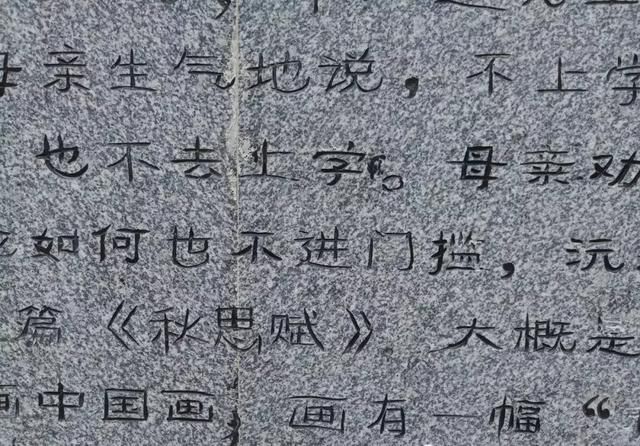 母亲生气地说，不上学
也不去上字。母亲劝
如何也不进门槛，沅
篇《秋思赋》 大概是
画中国画，画有一幅“